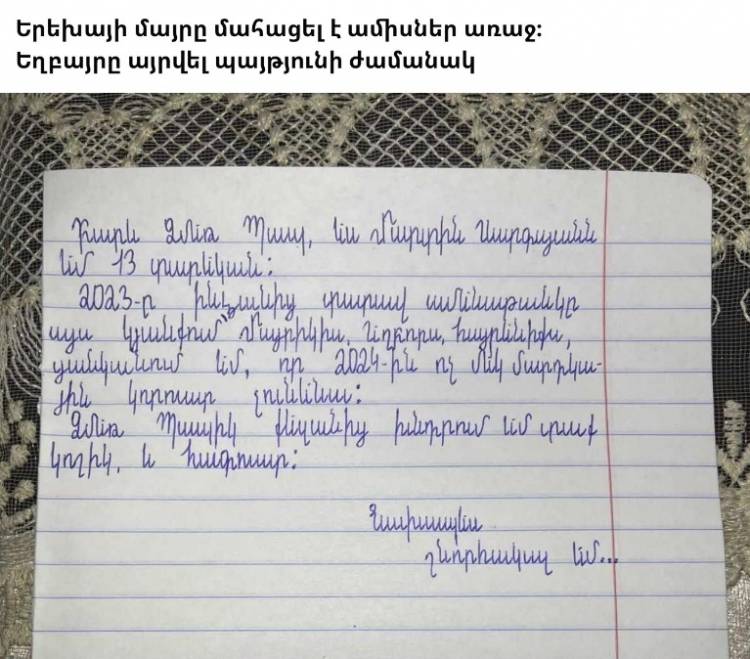 Երեխայի մայրը մահացել է ամիսներ առաջ:
Եղբայրը այրվել պայթյունի ժամանակ
Բարև Ձմեռ Պապ, ես Մարտին Սարգսյանն
եմ 13 տարեկան:
2023-ը ինձանից տարավ ամենաթանկը
այս կյանքում՝ Մայրիկիս, Եղբորս, հայրենիքս,
ցանկանում եմ, որ 2024-ին ոչ մեկ մարդկա-
յին կորուստ չունենա:
Ձմեռ Պապիկ քեզանից խնդրում եմ տաք
կոշիկ, և հագուստ:
Նախապես
շնորհակալ եմ...